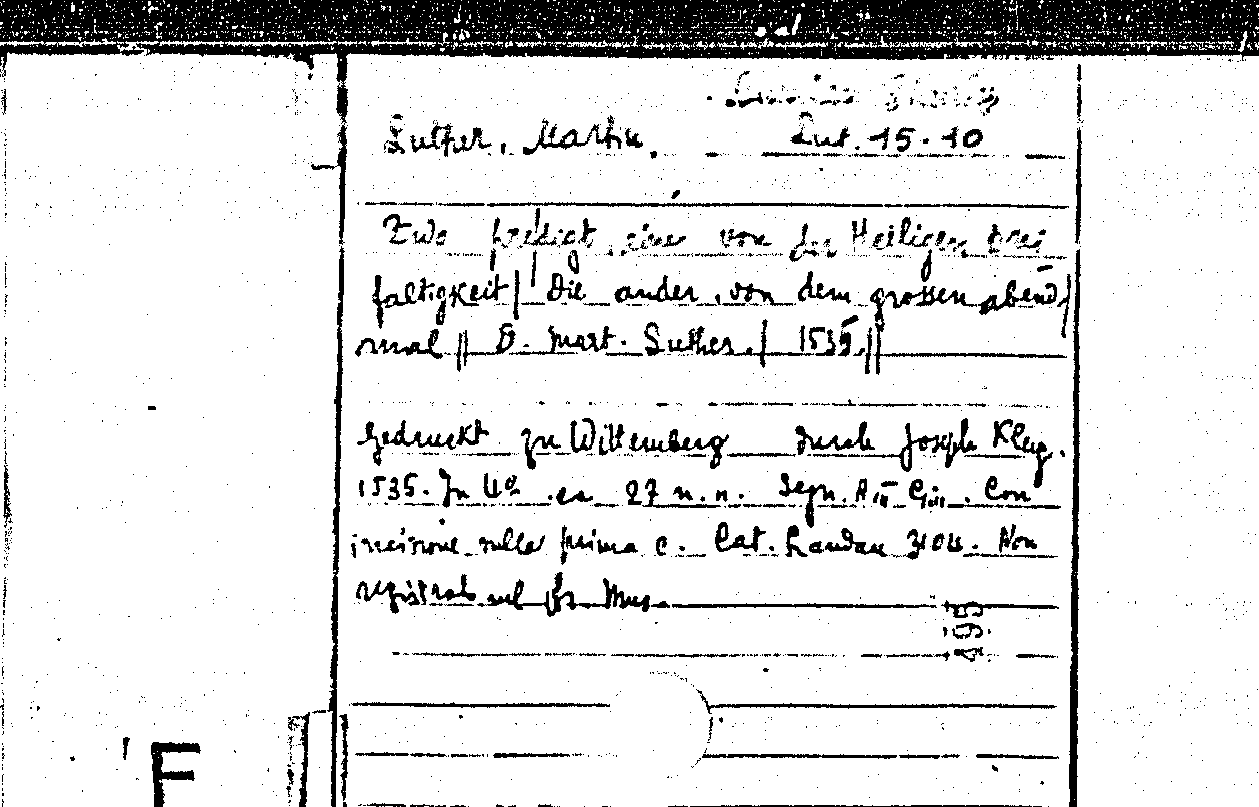 Luther, Martin. Lut. 15. 10
Zwo predigt, eine von der Heiligen drei
faltigkeit| Die ander, von dem grossen abend|
mal || D. Mart. Luther.| 1535.||
Gedruckt zu Wittemberg durch Joseph Klug.
1535. In 4º cc. 27 n. n. Segn. A iii Giii. Con
incisione sulla prima c. Cat. Landau 3104. Non
registrato nel Br. Mus.
495
F